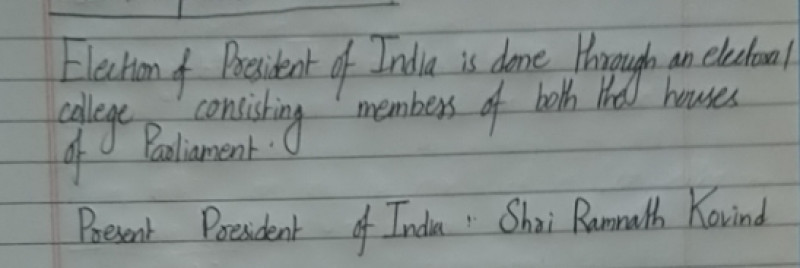 Election of President of India is done through an electoral
college consisting members of both the houses
of Parliament.
Present President of India : Shri Ramnath Kovind